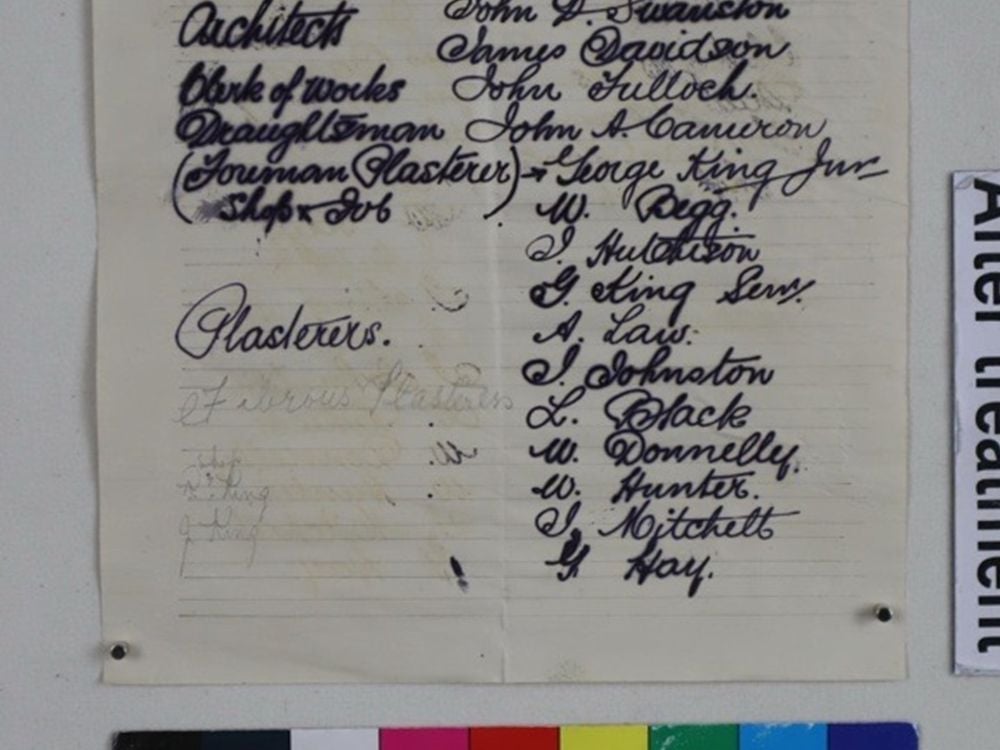 Architects John D. Swanston
James Davidson
Clerk of Works John Tulloch.
Draughtsman John A. Cameron
(Foreman Plasterer) → George King Jnr
(Shop & Job) W. Begg.
J. Hutchison
G. King Senr.
Plasterers. A. Law.
J. Johnston
Fibrous Plasterers L. Black
W. Donnelly.
shop
King W. Hunter.
G King J. Mitchell
G. Hay.
After treatment